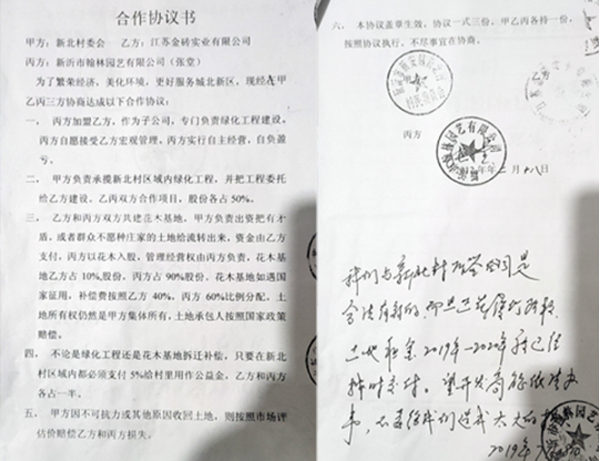 合作协议书
甲方：新北村委会 乙方：江苏金砖实业有限公司
丙方：新沂市翰林园艺有限公司（张堂）
为了繁荣经济，美化环境，更好服务城北新区，现经甲
乙丙三方协商达成以下合作协议：
一、 丙方加盟乙方，作为子公司，专门负责绿化工程建设，
丙方自愿接受乙方宏观管理，丙方实行自主经营，自负盈
亏。
二、 甲方负责承揽新北村区域内绿化工程，并把工程委托
给乙方建设。乙丙双方合作项目，股份各占50%。
三、 乙方和丙方双方共建花木基地，甲方负责出资把有矛
盾，或者群众不愿种庄家的土地给流转出来，资金由乙方
支付，丙方以花木入股，管理经营权由丙方负责，花木基
地乙方占10%股份，丙方占90%股份，花木基地如遇国
家征用，补偿费按照乙方40%，丙方60%比例分配。土
地所有权仍然是甲方集体所有，土地承包人按照国家政策
赔偿。
四、 不论是绿化工程还是花木基地拆迁补偿，只要在新北
村区域内都必须支付5%给村里用作公益金，乙方和丙方
各占一半。
五、 甲方因不可抗力或其他原因收回土地，则按照市场评
估价赔偿乙方和丙方损失。
六、 本协议盖章生效，协议一式三份，甲乙丙各持一份，
按照协议执行，不尽事宜在协商。
丙方
年二月十八日
我们与新北村 合同是
合法有效的
土地租金2019年—2020年我已经
按时交付。望开发商
事，不要给我们造成太大的
2019年